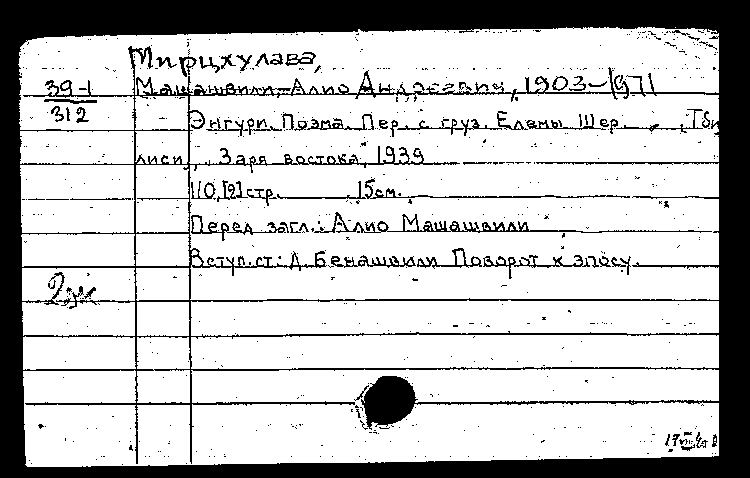 Мирцхулава,
39-1
312
Машашвили-Алио Андреевич, 1903-1971
Энгури. Поэма. Пер. с груз. Елены Шер. , [Тби
лиси], Заря востока, 1939
110,[2]стр. 15см.
Перед загл.: Алио Машашвили
Вступ.ст: Д. Бенашвили Поворот к эпосу.
2эк